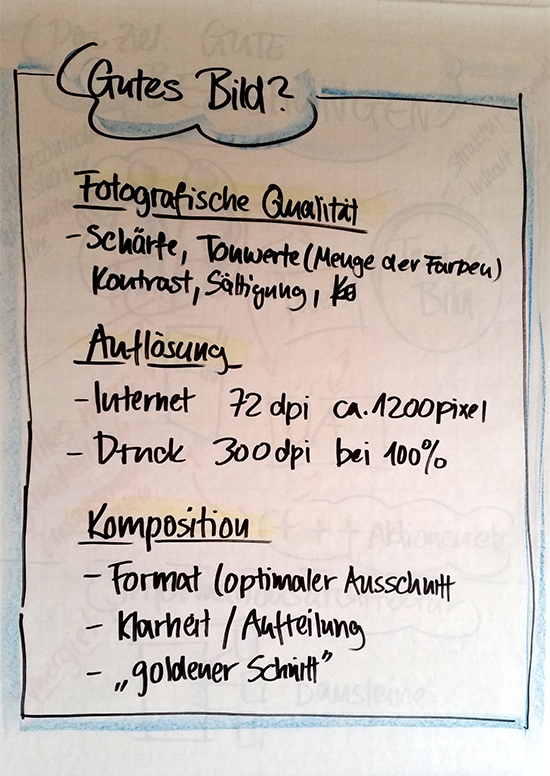 Gutes Bild?
Fotografische Qualität
- Schärfe, Tonwerte (Menge der Farben)
Kontrast, Sättigung,
Auflösung
- Internet 72 dpi ca. 1200 pixel
- Druck 300 dpi bei 100%
Komposition
- Format (optimaler Ausschnitt
- Klarheit / Aufteilung
- „goldener Schnitt”